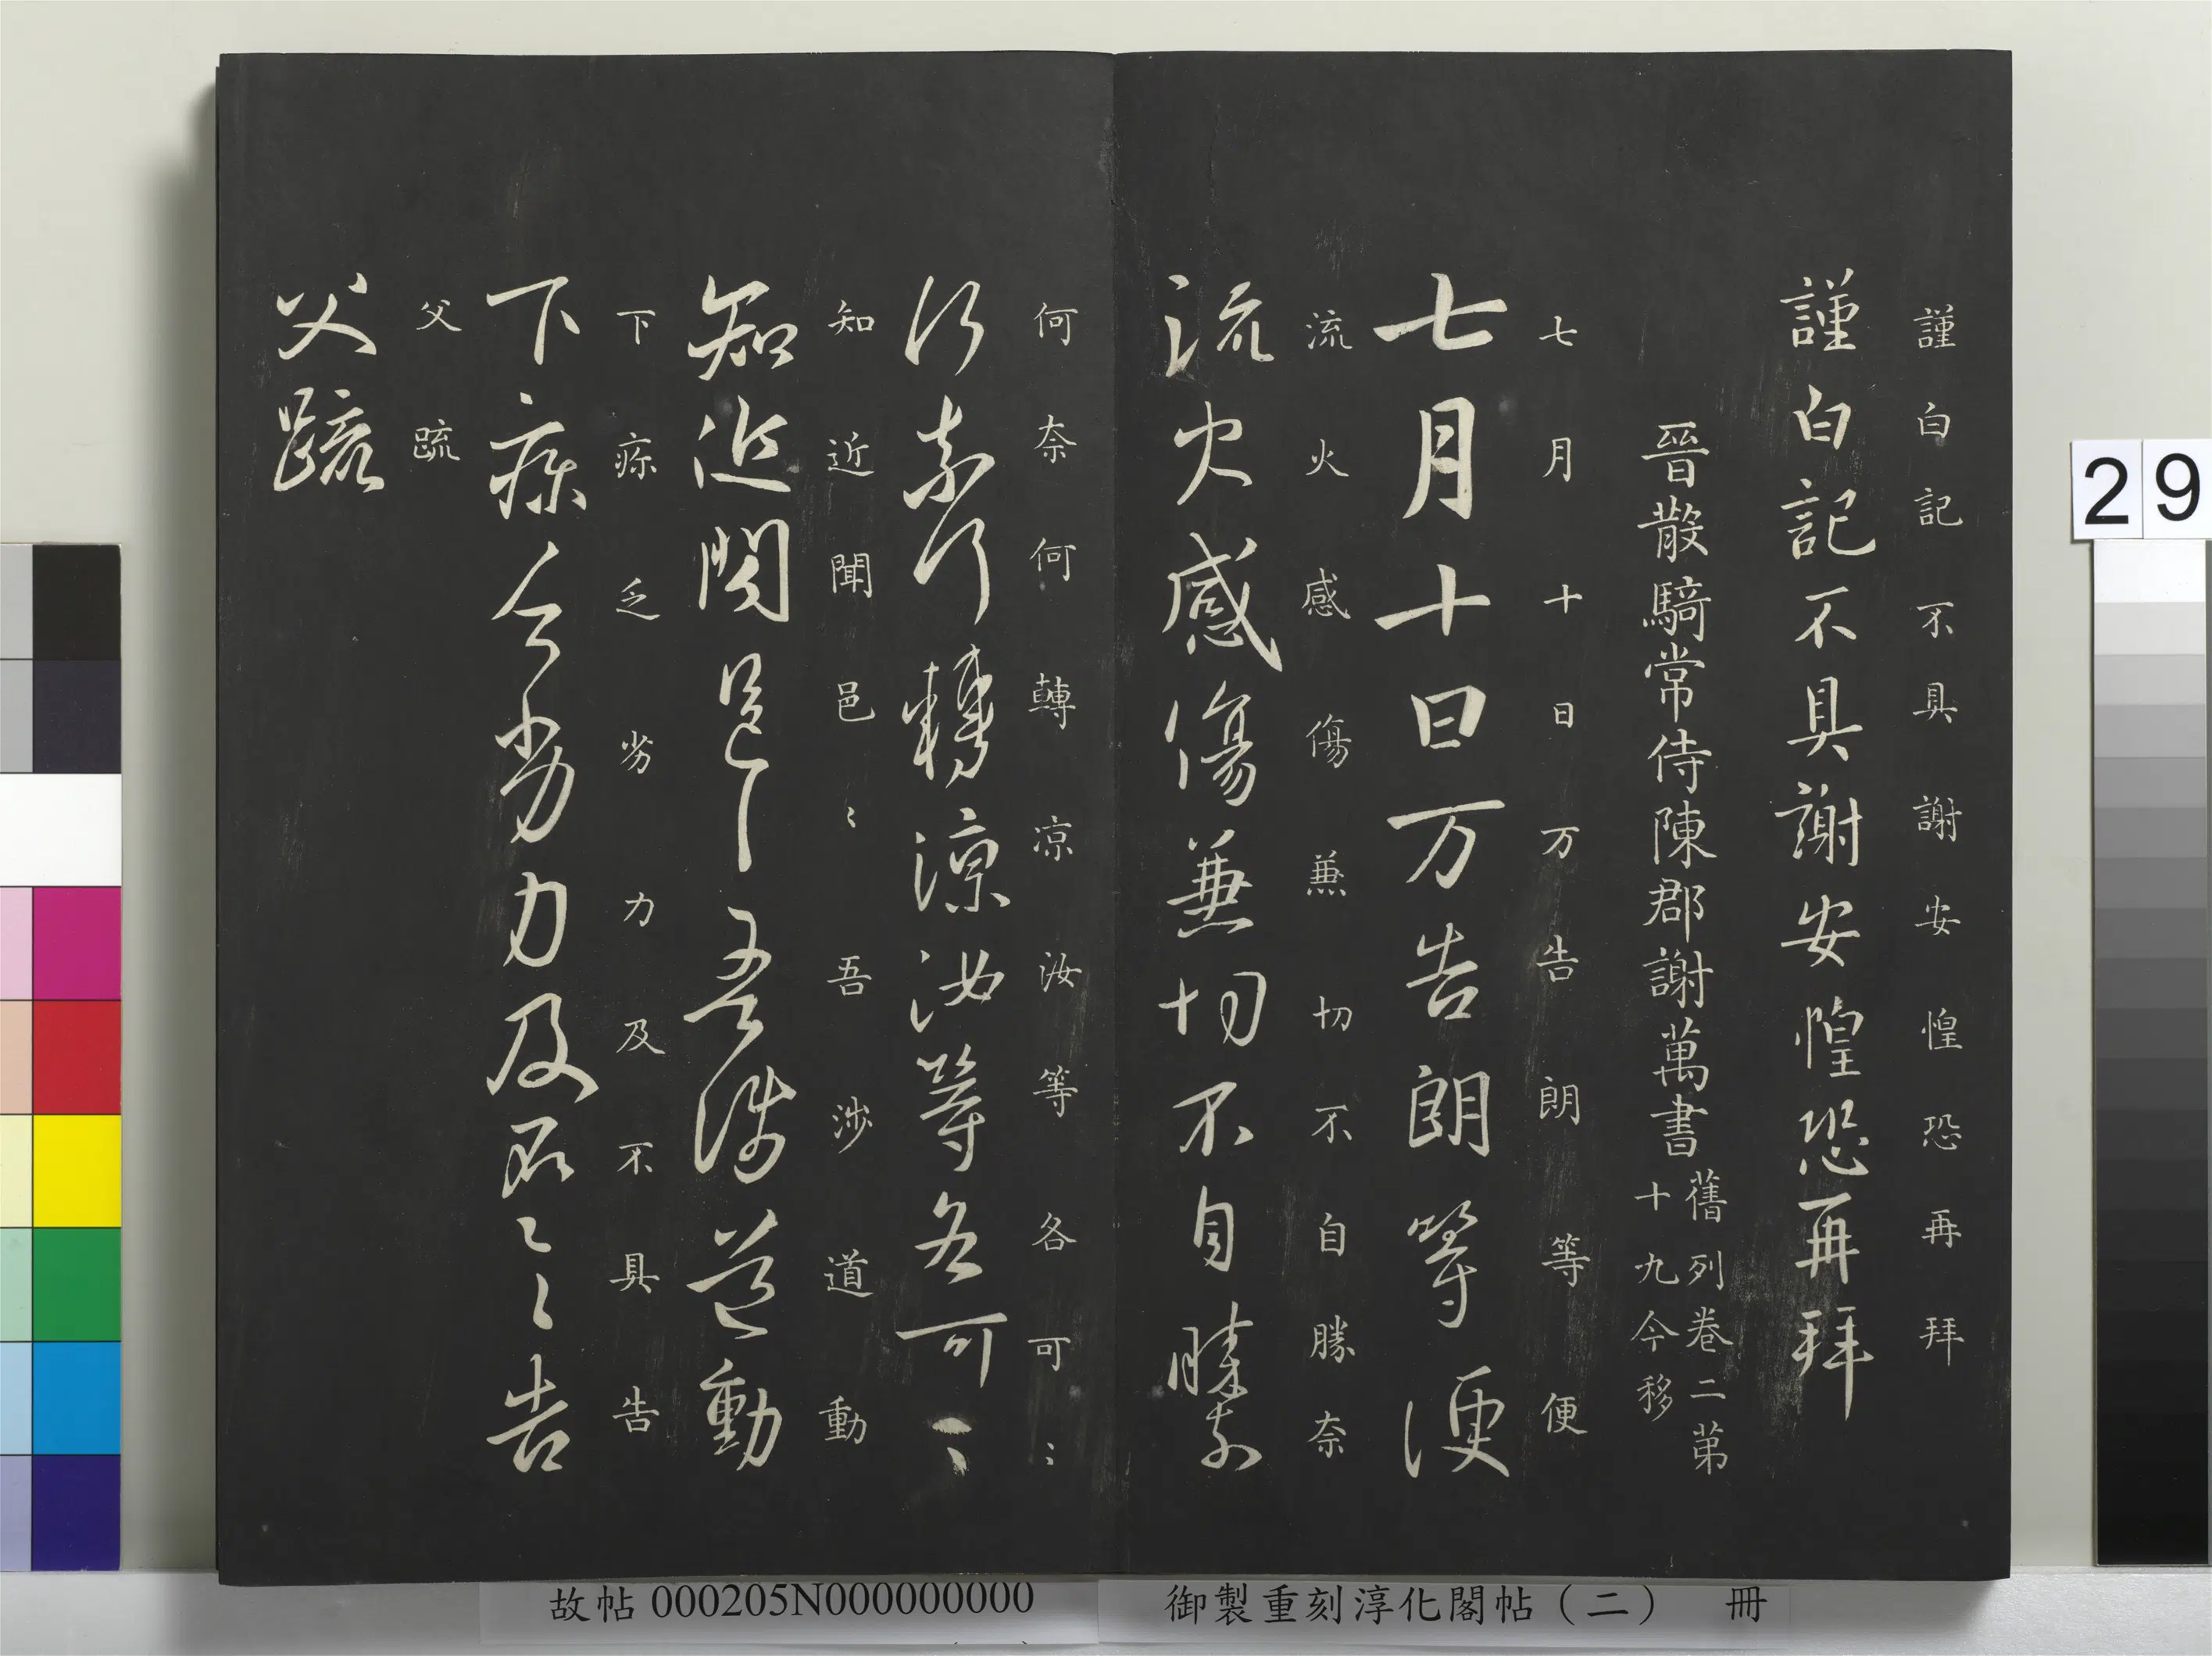 謹白記不具謝安惶恐再拜
謹白記不具謝安惶恐再拜
晉散騎常侍陳郡謝萬書
舊列卷二第
十九今移
七月十日万告朗等便
七月十日万告朗等便
流火感傷蕪切不自勝奈
流火感傷兼切不自勝奈
何奈何轉凉汝等各可〻
何奈何轉涼汝等各可〻
知近聞邑〻吾涉道動
知近聞邑〻吾涉道動
下疢乏劣力及不具告
下疢乏劣力及不具〻告
父䟽
父䟽
29
故帖 000205N000000000
御製重刻淳化閣帖（二） 冊